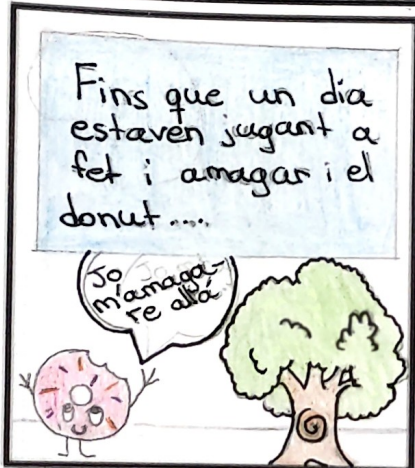 Fins que un dia
estaven jugant a
fet i amagar i el
donut....
Jo
m'amaga-
re allà